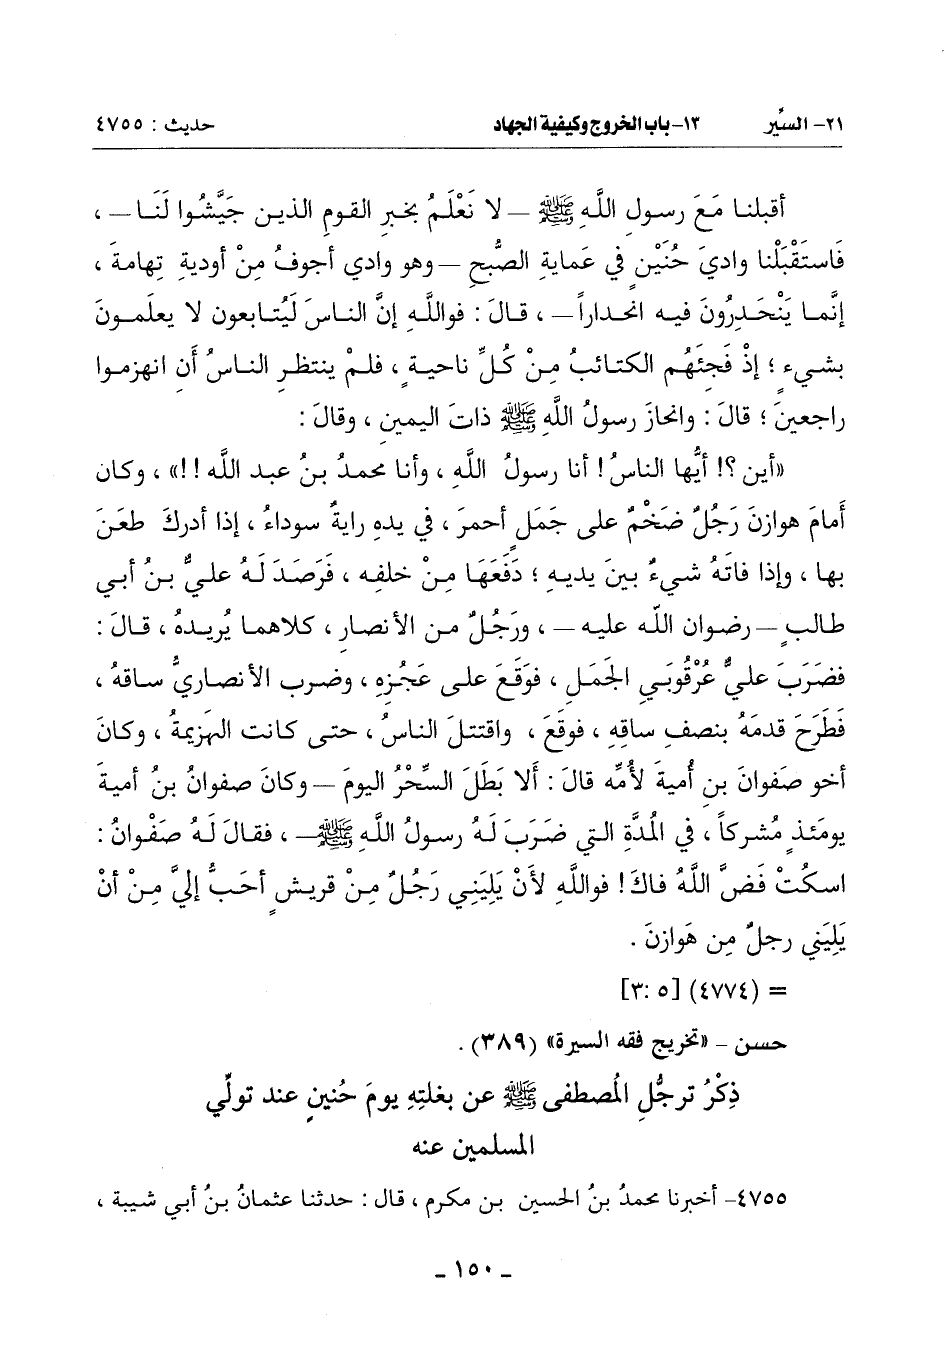 ٢١- السِّير ١٣-باب الخروج وكيفية الجهاد حديث : ٤٧٥٥
أقبلنا مَعَ رسولِ اللَّهِ ﷺ — لا نَعْلَمُ بخبرِ القومِ الذين جَيَّشُوا لَنَا — ،
فَاستَقْبَلْنا وادِيَ حُنَيْنٍ في عَمايةِ الصُّبحِ — وهو وادي أجوفُ مِنْ أوديةِ تِهامةَ ،
إنَّما يَنْحَدِرُونَ فيه انحداراً — ، قالَ : فواللَّهِ إنَّ الناسَ لَيُتابعون لا يعلَمون
بشيءٍ ؛ إذْ فَجِئَهُم الكتائبُ مِنْ كُلِّ ناحيةٍ ، فلمْ ينتظرِ الناسُ أَنِ انهزموا
راجعينَ ؛ قالَ : وانحازَ رسولُ اللَّهِ ﷺ ذاتَ اليمينِ ، وقالَ :
«أين ؟! أيُّها الناسُ ! أنا رسولُ اللَّهِ ، وأنا محمدُ بنُ عبد الله !!» ، وكان
أمامَ هوازنَ رَجُلٌ ضَخْمٌ على جَمَلٍ أحمرَ ، في يدِهِ رايةٌ سوداءُ ، إذا أدركَ طَعَنَ
بها ، وإذا فاتَهُ شيءٌ بينَ يديهِ ؛ دَفَعَهَا مِنْ خلفِه ، فَرَصَدَ لَهُ عليُّ بنُ أبي
طالبٍ — رضوان الله عليه — ، ورَجُلٌ من الأنصارِ ، كلاهما يُريدهُ ، قالَ :
فضَرَبَ عليٌّ عُرْقُوبَيِ الجَمَلِ ، فوَقَعَ على عَجُزِهِ ، وضرب الأنصاريُّ ساقهُ ،
فَطَرَحَ قدمَهُ بنصفِ ساقِهِ ، فوقَعَ ، واقتتلَ الناسُ ، حتى كانت الهزيمةُ ، وكانَ
أخو صَفوانَ بنِ أُميةَ لأُمِّه قالَ : ألا بَطَلَ السِّحْرُ اليومَ — وكانَ صفوانُ بنُ أميةَ
يومَئذٍ مُشركاً ، في المُدَّةِ التي ضَرَبَ لَهُ رسولُ اللَّهِ ﷺ — ، فقالَ لَهُ صَفْوانُ :
اسكُتْ فَضَّ اللَّهُ فاكَ ! فواللهِ لأَنْ يَلِيَني رَجُلٌ مِنْ قريشٍ أحَبُّ إليَّ مِنْ أنْ
يَلِيَني رجلٌ مِن هَوازنَ .
= (٤٧٧٤) [٥ :٣]
حسن - «تخريج فقه السيرة» (٣٨٩) .
ذِكْرُ ترجُّلِ المُصطفى ﷺ عن بغلتِهِ يومَ حُنينٍ عند تولِّي
المسلمين عنه
٤٧٥٥- أخبرنا محمدُ بنُ الحسين بن مكرم ، قال : حدثنا عثمانُ بنُ أبي شيبة ،
- ١٥٠ -